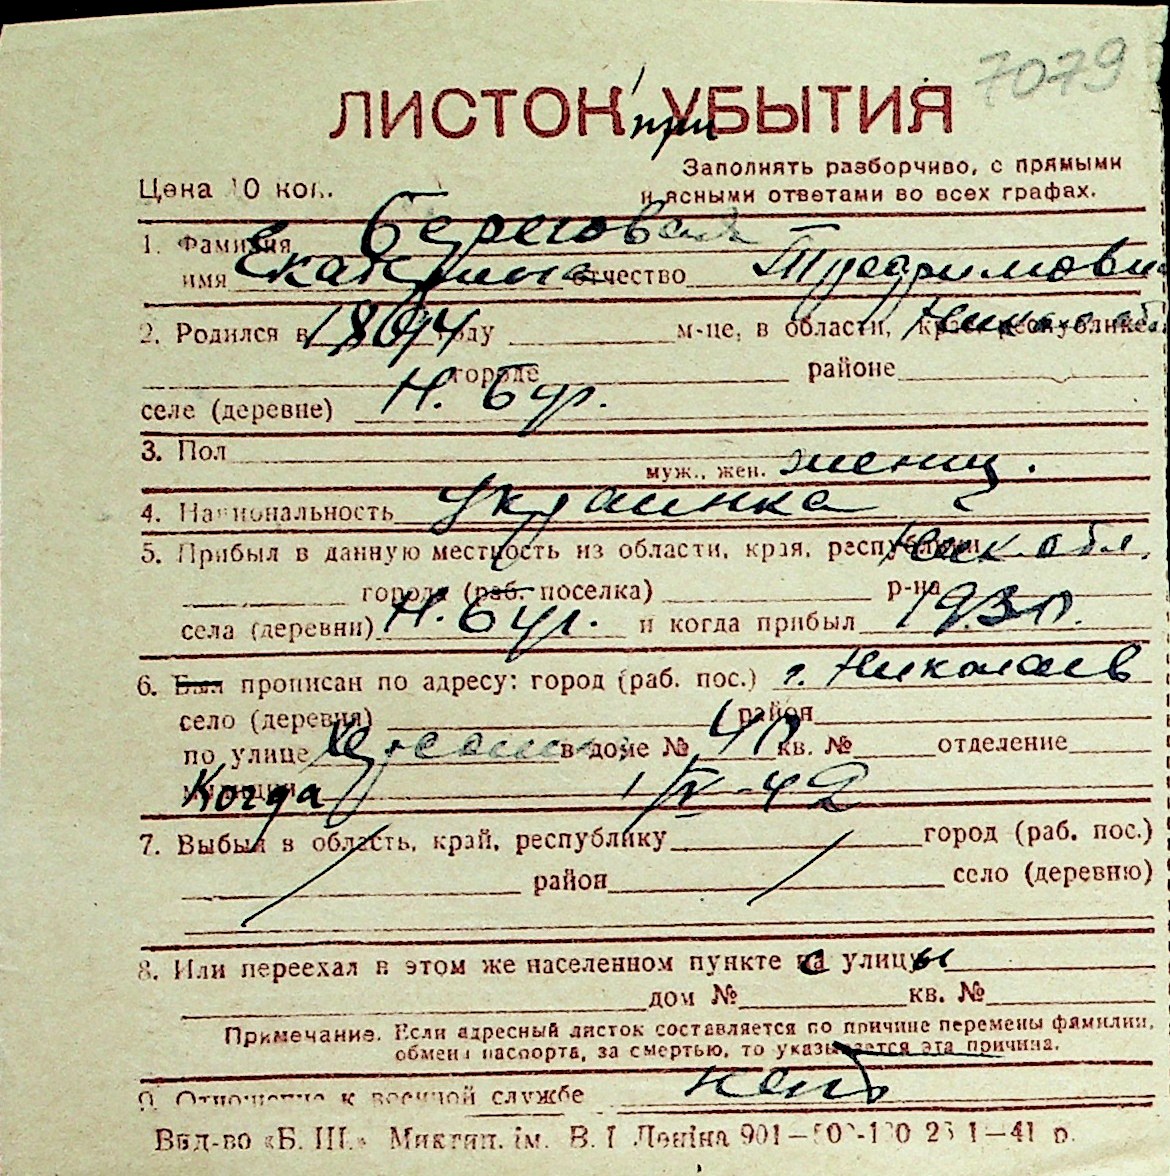 7079
ЛИСТОК при УБЫТИЯ
Заполнять разборчиво, с прямыми
Цена 10 коп. и ясными ответами во всех графах.
1. Фамилия Береговая
имя Екатерина отчество Трофимовн
2. Родился в 1894 году м-це, в области, крае, республике
городе районе
селе (деревне) Н. Буг.
3. Пол муж., жен. женщ.
4. Национальность украинка
5. Прибыл в данную местность из области, края, республики Ник. обл.
города (раб. поселка) р-на
села (деревни) Н. Буг. и когда прибыл 1930.
6. Был прописан по адресу: город (раб. пос.) г. Николаев
село (деревня) район
по улице в доме № 40 кв. № отделение
милиции Когда 1/IV-42
7. Выбыл в область, край, республику город (раб. пос.)
район село (деревню)
8. Или переехал в этом же населенном пункте с улицы
дом № кв. №
Примечание. Если адресный листок составляется по причине перемены фамилии,
обмена паспорта, за смертью, то указывается эта причина.
9. Отношение к военной службе
Вид-во «Б. Ш.» Микгип. ім. В. І Леніна 901—500-100 25 1—41 р.